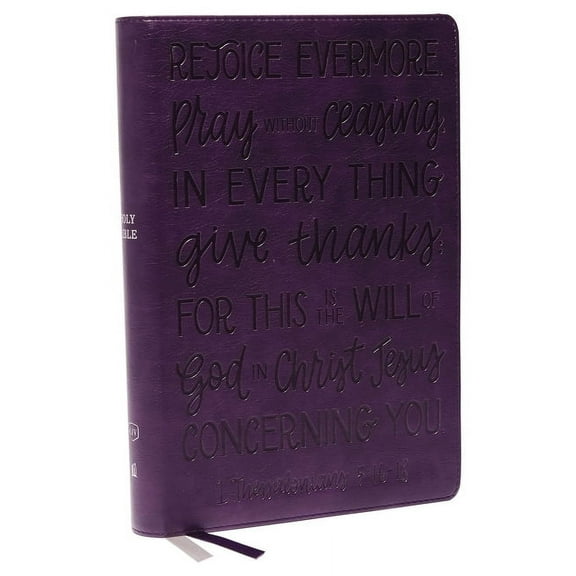 REJOICE EVERMORE.
Pray WITHOUT Ceasing.
IN EVERY THING
give thanks:
FOR THIS IS THE WILL OF
God IN Christ Jesus
CONCERNING YOU.
1 Thessalonians 5:16-18
HOLY
BIBLE
KJV